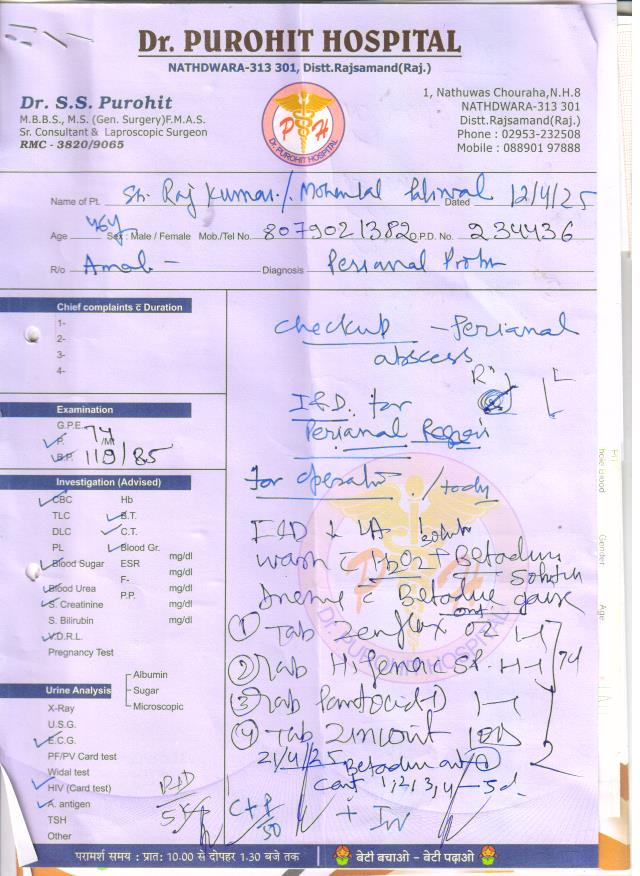 Dr. PUROHIT HOSPITAL
NATHDWARA-313 301, Distt.Rajsamand(Raj.)
Dr. S.S. Purohit
M.B.B.S., M.S. (Gen. Surgery)F.M.A.S.
Sr. Consultant & Laproscopic Surgeon
RMC - 3820/9065
P H
Dr. PUROHIT HOSPITAL
1, Nathuwas Chouraha,N.H.8
NATHDWARA-313 301
Distt.Rajsamand(Raj.)
Phone : 02953-232508
Mobile : 088901 97888
Name of Pt. Sh. Raj Kumar / Mohanlal Paliwal Dated 12/4/25
Age 46y Sex : Male / Female Mob./Tel No. 8079021382 O.P.D. No. 234436
R/o Amet - Diagnosis Perianal
Chief complaints c̄ Duration
1-
2-
3-
4-
Examination
G.P.E.
P. 74 /Mt
B.P. 119/85
Investigation (Advised)
CBC Hb
TLC B.T.
DLC C.T.
PL Blood Gr.
Blood Sugar ESR mg/dl
F- mg/dl
Blood Urea P.P. mg/dl
S. Creatinine mg/dl
S. Bilirubin mg/dl
V.D.R.L.
Pregnancy Test
Urine Analysis
Albumin
Sugar
Microscopic
X-Ray
U.S.G.
E.C.G.
PF/PV Card test
Widal test
HIV (Card test)
A. antigen
TSH
Other
checkup - Perianal
abscess
I&D for
Perianal Region
for operation / today
I&D
wash c̄ H2O2 + Betadine
Solution
c̄ Betadine gauze
oint.
① Tab Zenflox OZ 1-1
② Tab Hifenac SP 1-1 7d
③ Tab Pantocid D 1-1
④ Tab Zincovit 10D
21/4/25 Betadine oint
Cont 1, 2, 3, 4 - 5d.
परामर्श समय : प्रात: 10-00 से दोपहर 1-30 बजे तक
बेटी बचाओ - बेटी पढ़ाओ
Gender
Age